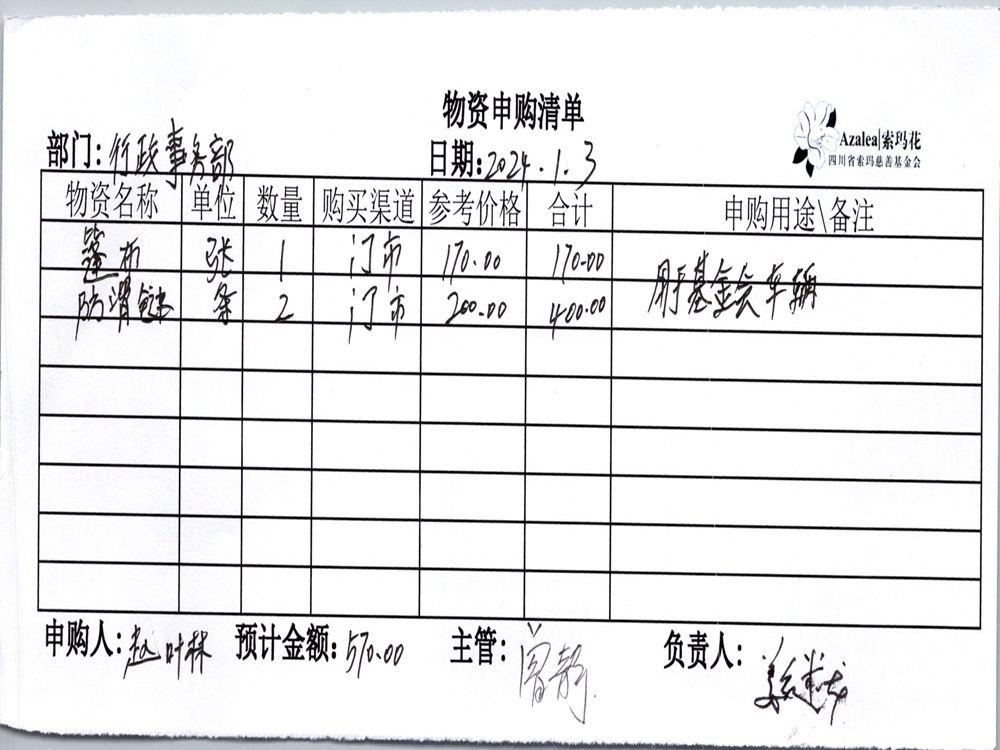 物资申购清单
Azalea|索玛花
四川省索玛慈善基金会
部门：行政事务部 日期：2024.1.3
物资名称 单位 数量 购买渠道 参考价格 合计 申购用途\备注
篷布 张 1 门市 170.00 170.00 用于基金会车辆
防滑链 条 2 门市 200.00 400.00
申购人：赵叶林 预计金额：570.00 主管：曾静 负责人：